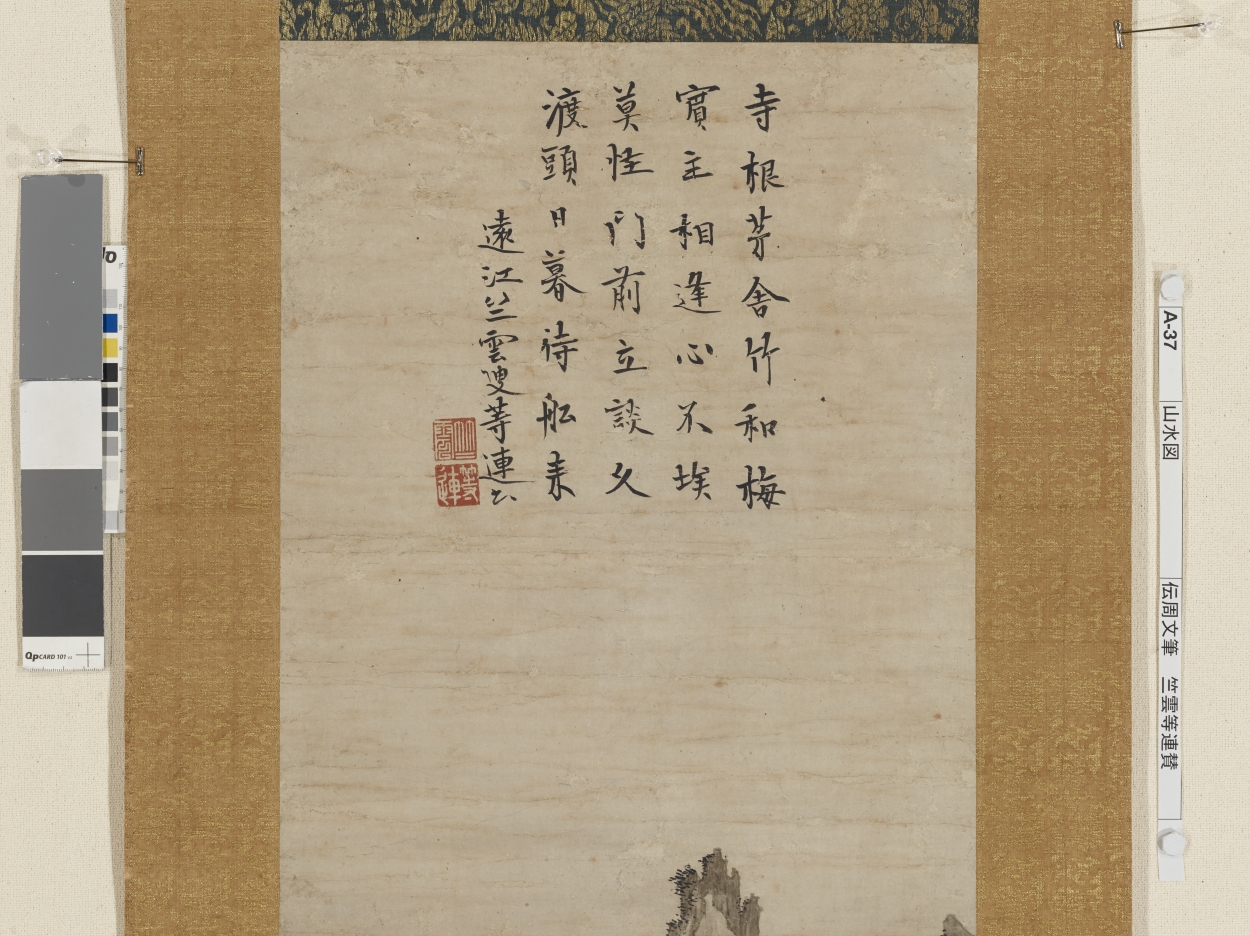 寺根茅舎竹和梅
賓主相逢心不埃
莫恠門前立談久
渡頭日暮待舩来
遠江竺雲叟等連書
竺雲
等連
A-37
山水図
伝周文筆 竺雲等連賛
QPCARD 101 v3